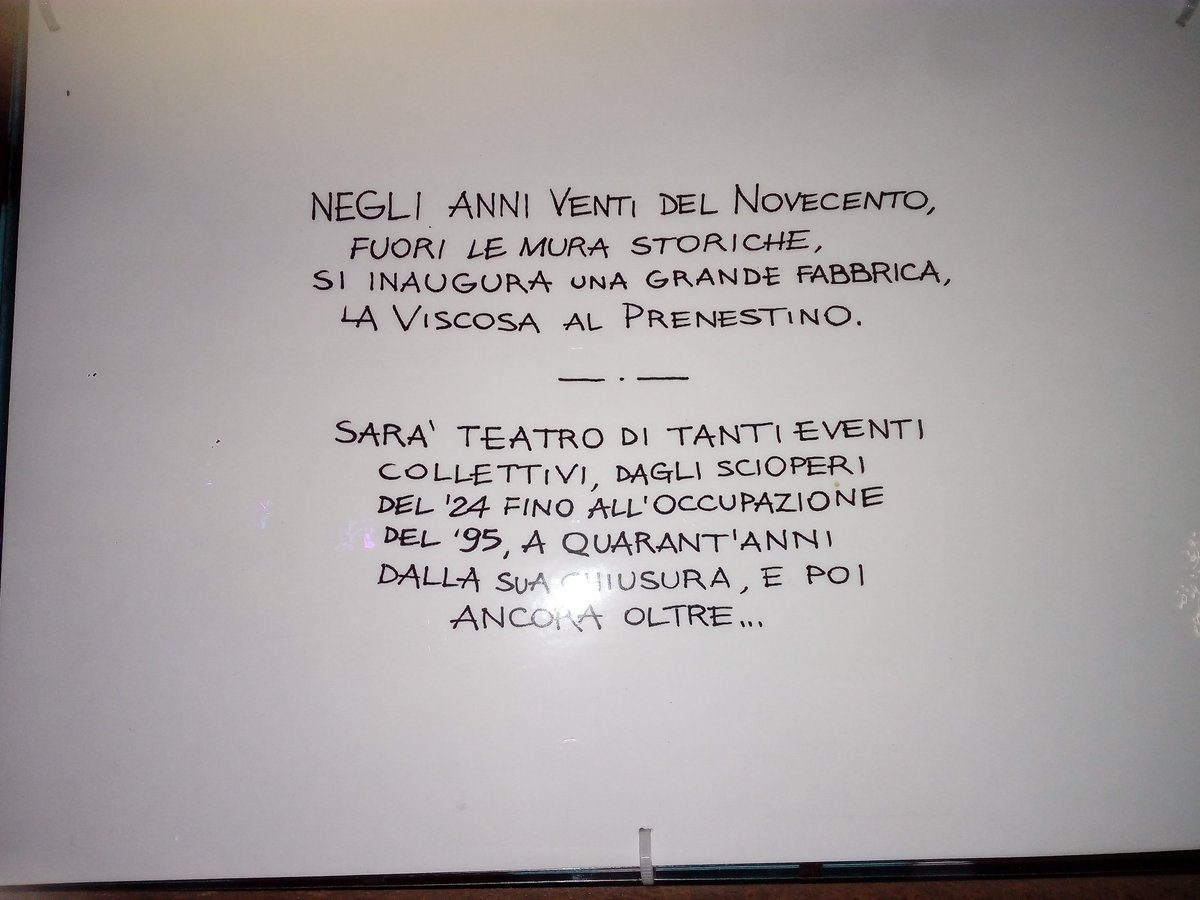 NEGLI ANNI VENTI DEL NOVECENTO,
FUORI LE MURA STORICHE,
SI INAUGURA UNA GRANDE FABBRICA,
LA VISCOSA AL PRENESTINO.
— . —
SARA' TEATRO DI TANTI EVENTI
COLLETTIVI, DAGLI SCIOPERI
DEL '24 FINO ALL'OCCUPAZIONE
DEL '95, A QUARANT'ANNI
DALLA SUA CHIUSURA, E POI
ANCORA OLTRE...